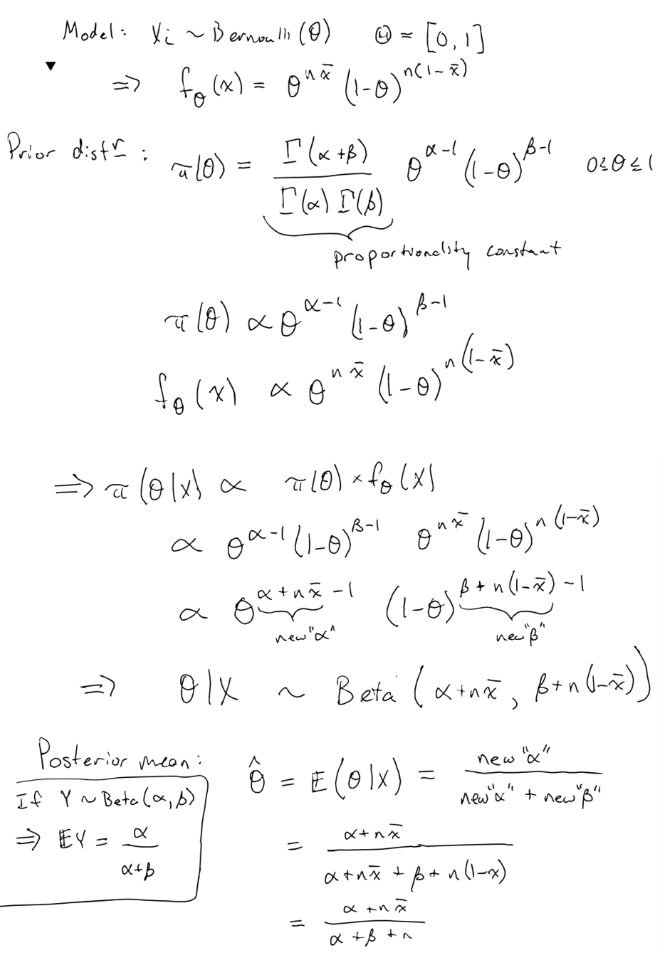 Model: Xᵢ ~ Bernoulli(θ) Θ = [0,1]
⇒ f_θ(x) = θ^{n x̄} (1-θ)^{n(1-x̄)}
Prior distⁿ: π(θ) = Γ(α+β) / Γ(α) Γ(β) θ^{α-1} (1-θ)^{β-1} 0≤θ≤1
proportionality constant
π(θ) ∝ θ^{α-1} (1-θ)^{β-1}
f_θ(x) ∝ θ^{n x̄} (1-θ)^{n(1-x̄)}
⇒ π(θ|x) ∝ π(θ) × f_θ(x)
∝ θ^{α-1} (1-θ)^{β-1} θ^{n x̄} (1-θ)^{n(1-x̄)}
∝ θ^{α+n x̄ -1} (1-θ)^{β+n(1-x̄) -1}
new "α" new "β"
⇒ θ|X ~ Beta(α+n x̄, β+n(1-x̄))
Posterior mean:
If Y ~ Beta(α,β)
⇒ EY = α / α+β
θ̂ = E(θ|X) = new "α" / new "α" + new "β"
= α+n x̄ / α+n x̄ + β + n(1-x)
= α + n x̄ / α + β + n